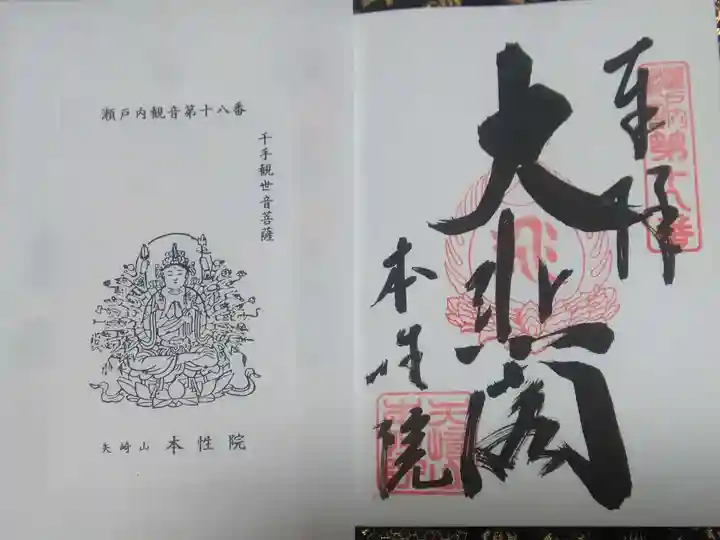 瀬戸内観音第十八番
千手観世音菩薩
矢崎山 本性院
奉拝
瀬戸内第十八番
大悲閣
本性院